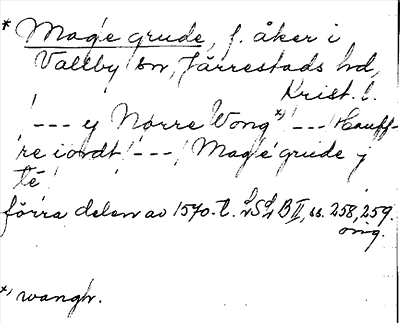 * Mage grude, f. åker i
Vallby sn, Järrestads hd,
Krist. l.
"--- y Nørre Wong*) --- Hauff-
re iordt --- Mage grude j
te"
förra delen av 1570-t. B II, s. 258, 259.
orig.
*) wangh.